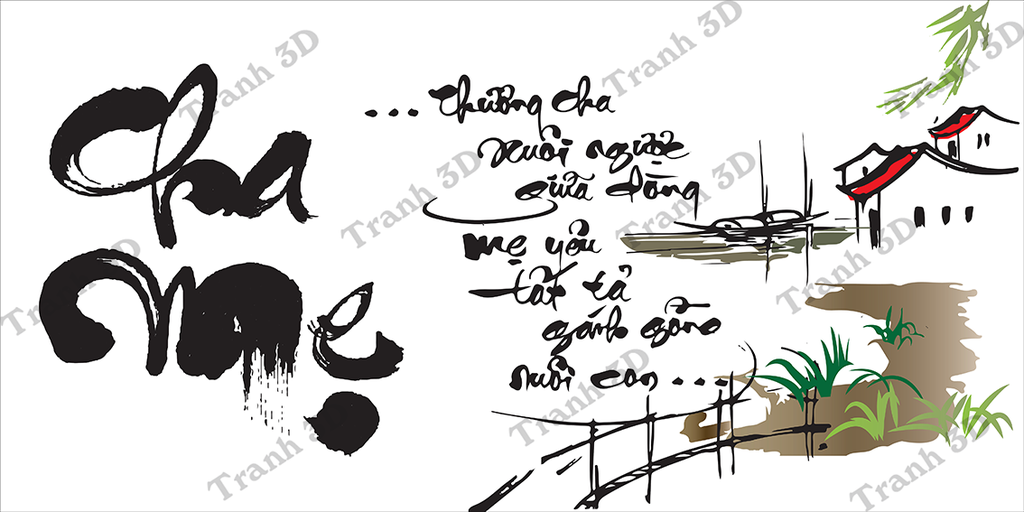 Cha
Mẹ
... Thương cha
xuôi ngược
giữa dòng
mẹ yêu
tất tả
gánh gồng
nuôi con ...
Tranh 3D
Tranh 3D
Tranh 3D
Tranh 3D
Tranh 3D
Tranh 3D
Tranh 3D
Tranh 3D
Tranh 3D
Tranh 3D
Tranh 3D